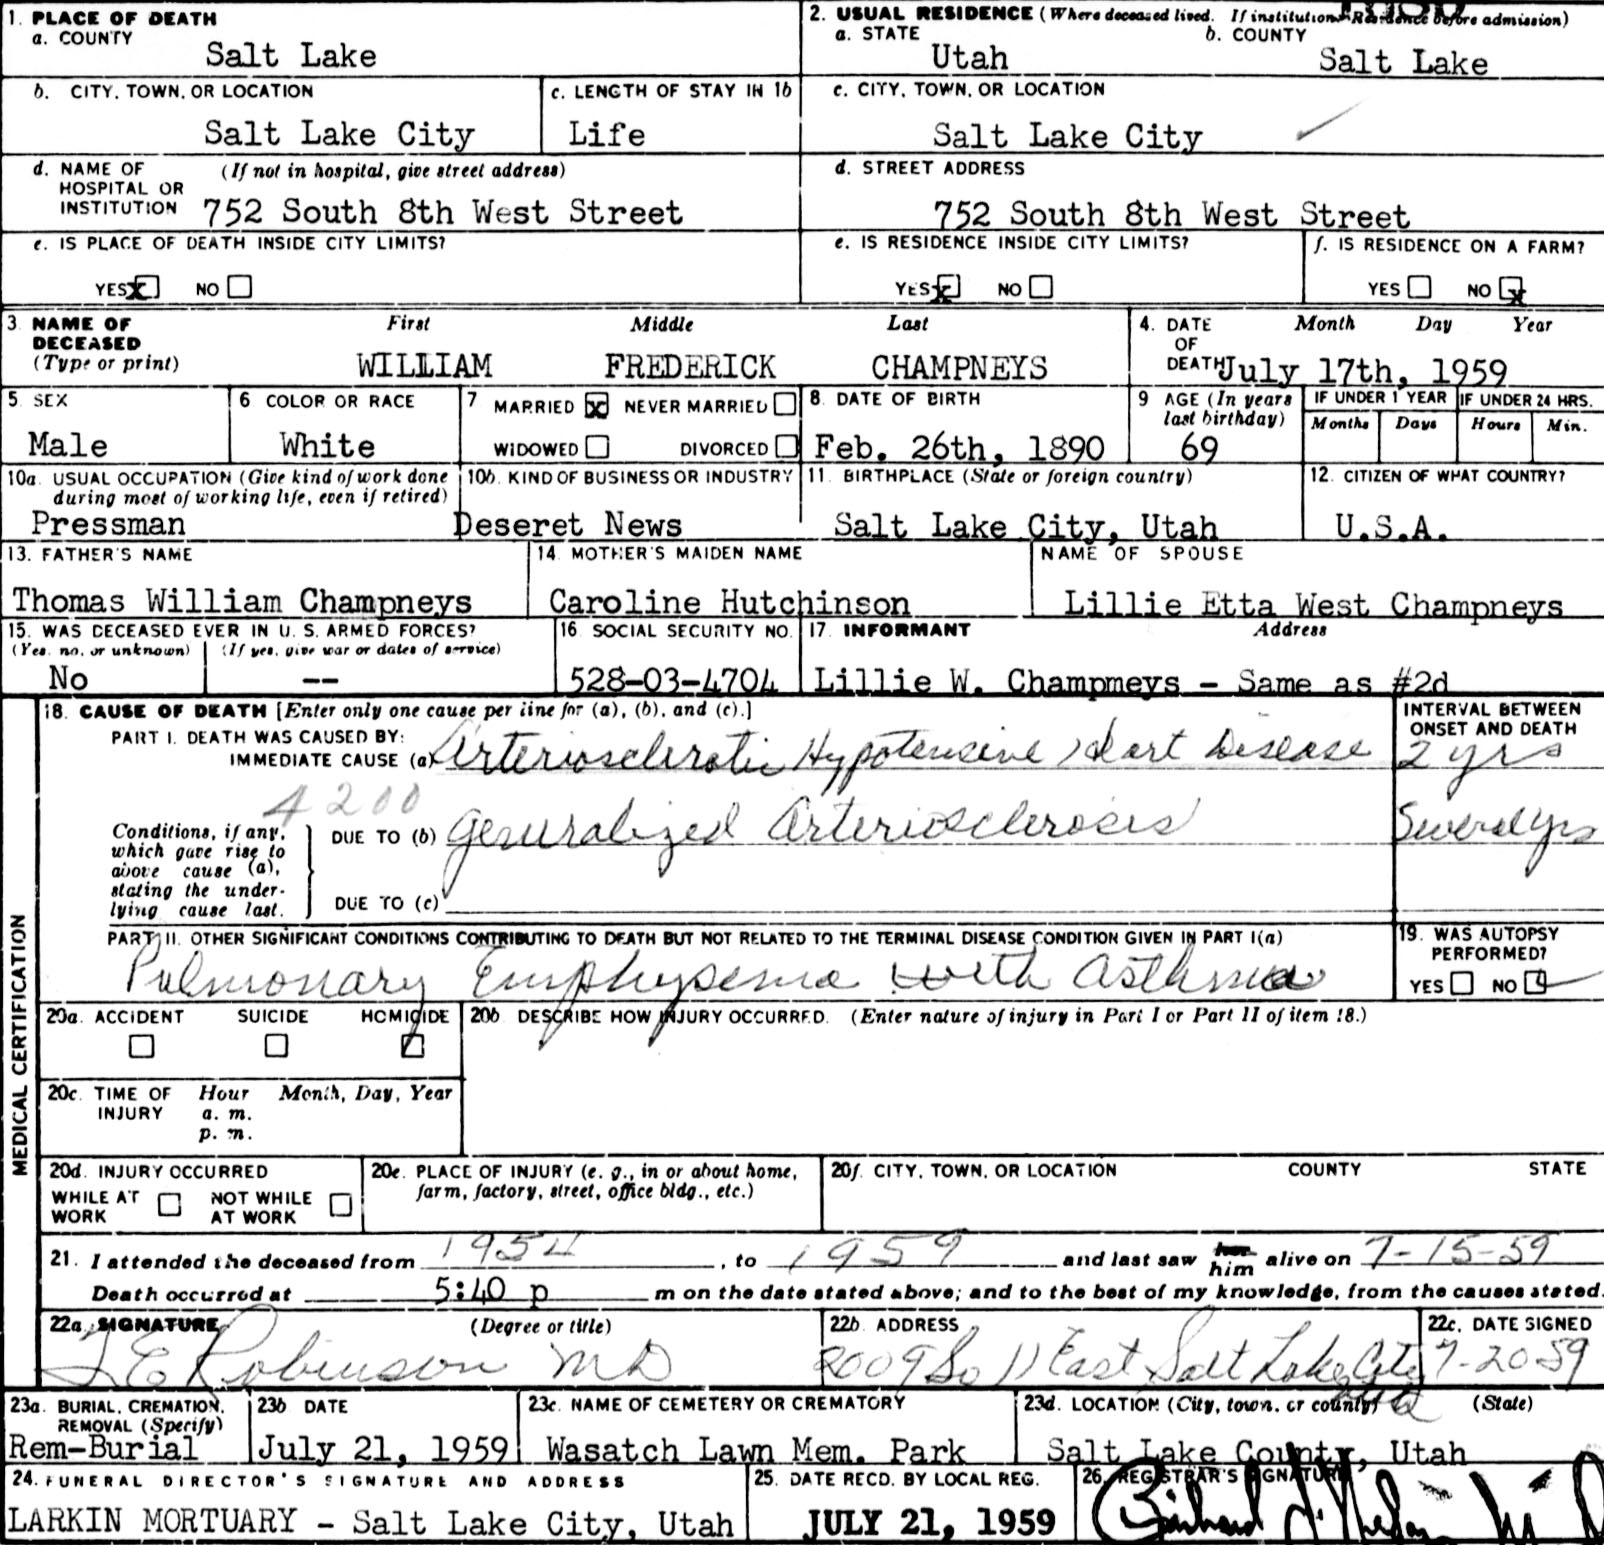 1. PLACE OF DEATH
a. COUNTY
Salt Lake
2. USUAL RESIDENCE (Where deceased lived. If institution: Residence before admission)
a. STATE
Utah
b. COUNTY
Salt Lake
b. CITY, TOWN, OR LOCATION
Salt Lake City
c. LENGTH OF STAY IN 1b
Life
c. CITY, TOWN, OR LOCATION
Salt Lake City
d. NAME OF HOSPITAL OR INSTITUTION (If not in hospital, give street address)
752 South 8th West Street
d. STREET ADDRESS
752 South 8th West Street
e. IS PLACE OF DEATH INSIDE CITY LIMITS?
YES x NO
e. IS RESIDENCE INSIDE CITY LIMITS?
YES x NO
f. IS RESIDENCE ON A FARM?
YES NO x
3. NAME OF DECEASED (Type or print)
First Middle Last
WILLIAM FREDERICK CHAMPNEYS
4. DATE OF DEATH
Month Day Year
July 17th, 1959
5 SEX
Male
6 COLOR OR RACE
White
7 MARRIED x NEVER MARRIED
WIDOWED DIVORCED
8. DATE OF BIRTH
Feb. 26th, 1890
9 AGE (In years last birthday)
69
IF UNDER 1 YEAR
Months Days
IF UNDER 24 HRS.
Hours Min.
10a. USUAL OCCUPATION (Give kind of work done during most of working life, even if retired)
Pressman
10b. KIND OF BUSINESS OR INDUSTRY
Deseret News
11. BIRTHPLACE (State or foreign country)
Salt Lake City, Utah
12. CITIZEN OF WHAT COUNTRY?
U.S.A.
13. FATHER'S NAME
Thomas William Champneys
14. MOTHER'S MAIDEN NAME
Caroline Hutchinson
NAME OF SPOUSE
Lillie Etta West Champneys
15. WAS DECEASED EVER IN U. S. ARMED FORCES?
(Yes, no, or unknown) (If yes, give war or dates of service)
No --
16. SOCIAL SECURITY NO.
528-03-4704
17. INFORMANT Address
Lillie W. Champmeys - Same as #2d
MEDICAL CERTIFICATION
18. CAUSE OF DEATH [Enter only one cause per line for (a), (b), and (c).]
PART I. DEATH WAS CAUSED BY:
IMMEDIATE CAUSE (a) Arteriosclerotic Hypotensive Heart Disease
INTERVAL BETWEEN ONSET AND DEATH
2 yrs
4200
Conditions, if any, which gave rise to above cause (a), stating the underlying cause last.
DUE TO (b) Generalized Arteriosclerosis
Several yrs
DUE TO (c)
PART II. OTHER SIGNIFICANT CONDITIONS CONTRIBUTING TO DEATH BUT NOT RELATED TO THE TERMINAL DISEASE CONDITION GIVEN IN PART I(a)
Pulmonary Emphysema with asthma
19. WAS AUTOPSY PERFORMED?
YES NO
20a. ACCIDENT SUICIDE HOMICIDE
20b. DESCRIBE HOW INJURY OCCURRED. (Enter nature of injury in Part I or Part II of item 18.)
20c. TIME OF INJURY
Hour Month, Day, Year
a. m.
p. m.
20d. INJURY OCCURRED
WHILE AT WORK NOT WHILE AT WORK
20e. PLACE OF INJURY (e. g., in or about home, farm, factory, street, office bldg., etc.)
20f. CITY, TOWN, OR LOCATION COUNTY STATE
21. I attended the deceased from 1954, to 1959 and last saw her him alive on 7-15-59
Death occurred at 5:40 p m on the date stated above; and to the best of my knowledge, from the causes stated.
22a. SIGNATURE (Degree or title)
Robinson MD
22b. ADDRESS
2009 So 11 East Salt Lake City Utah
22c. DATE SIGNED
7-20-59
23a. BURIAL, CREMATION, REMOVAL (Specify)
Rem-Burial
23b DATE
July 21, 1959
23c. NAME OF CEMETERY OR CREMATORY
Wasatch Lawn Mem. Park
23d. LOCATION (City, town, or county) (State)
Salt Lake County, Utah
24. FUNERAL DIRECTOR'S SIGNATURE AND ADDRESS
LARKIN MORTUARY - Salt Lake City, Utah
25. DATE RECD. BY LOCAL REG.
JULY 21, 1959
26. REGISTRAR'S SIGNATURE